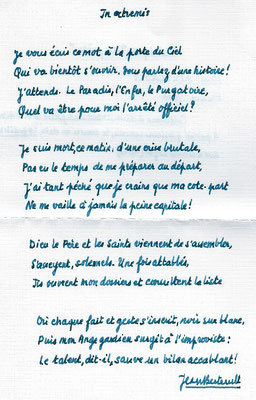 In extremis
Je vous écris ce mot à la porte du Ciel
Qui va bientôt s'ouvrir. Vous parlez d'une histoire!
J'attends. Le Paradis, l'Enfer, le Purgatoire,
Quel va être pour moi l'arrêté officiel?
Je suis mort, ce matin, d'une crise brutale,
Pas eu le temps de me préparer au départ,
J'ai tant péché que je crains que ma cote-part
Ne me vaille à jamais la peine capitale!
Dieu le Père et les Saints viennent de s'assembler,
S'asseyent, solennels. Une fois attablés,
Ils ouvrent mon dossier et consultent la liste
Où chaque fait et geste s'inscrit, noir sur blanc,
Puis mon Ange gardien surgit à l'improviste:
Le talent, dit-il, sauve un bilan accablant!